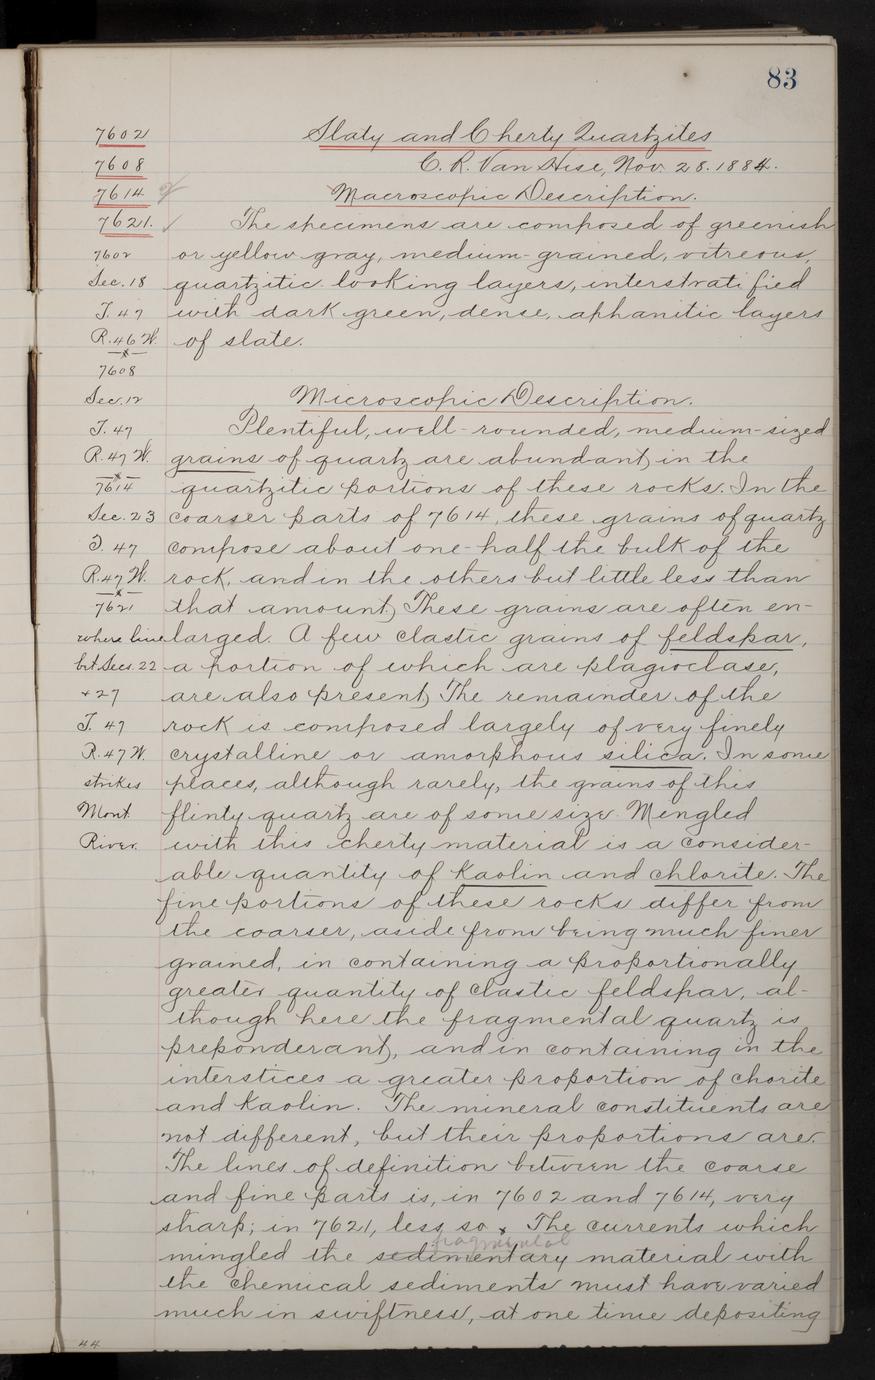 83
7602 Slaty and Cherty Quartzites
7608 C. R. Van Hise, Nov. 28. 1884.
7614 Macroscopic Description.
7621. ✓ The specimens are composed of greenish
7602 or yellow gray, medium-grained, vitreous,
Sec. 18 quartzitic looking layers, interstratified
T. 47 with dark green, dense, aphanitic layers
R. 46 W. of slate.
7608
Sec. 12 Microscopic Description.
T. 47 Plentiful, well-rounded, medium-sized
R. 47 W. grains of quartz are abundant in the
7614 quartzitic portions of these rocks. In the
Sec. 23 coarser parts of 7614, these grains of quartz
T. 47 compose about one-half the bulk of the
R. 47 W. rock, and in the others but little less than
7621 that amount) These grains are often en-
where line larged. A few clastic grains of feldspar,
bet Secs. 22 a portion of which are plagioclase,
+ 27 are also present) The remainder of the
T. 47 rock is composed largely of very finely
R. 47 W. crystalline or amorphous silica. In some
strikes places, although rarely, the grains of this
Mont. flinty quartz are of some size. Mingled
River. with this cherty material is a consider-
able quantity of Kaolin and chlorite. The
fine portions of these rocks differ from
the coarser, aside from being much finer
grained, in containing a proportionally
greater quantity of clastic feldspar, al-
though here the fragmental quartz is
preponderant), and in containing in the
interstices a greater proportion of chorite
and Kaolin. The mineral constituents are
not different, but their proportions are.
The lines of definition between the coarse
and fine parts is, in 7602 and 7614, very
sharp; in 7621, less so x The currents which
fragmental
mingled the sedimentary material with
the chemical sediments must have varied
much in swiftness, at one time depositing
44